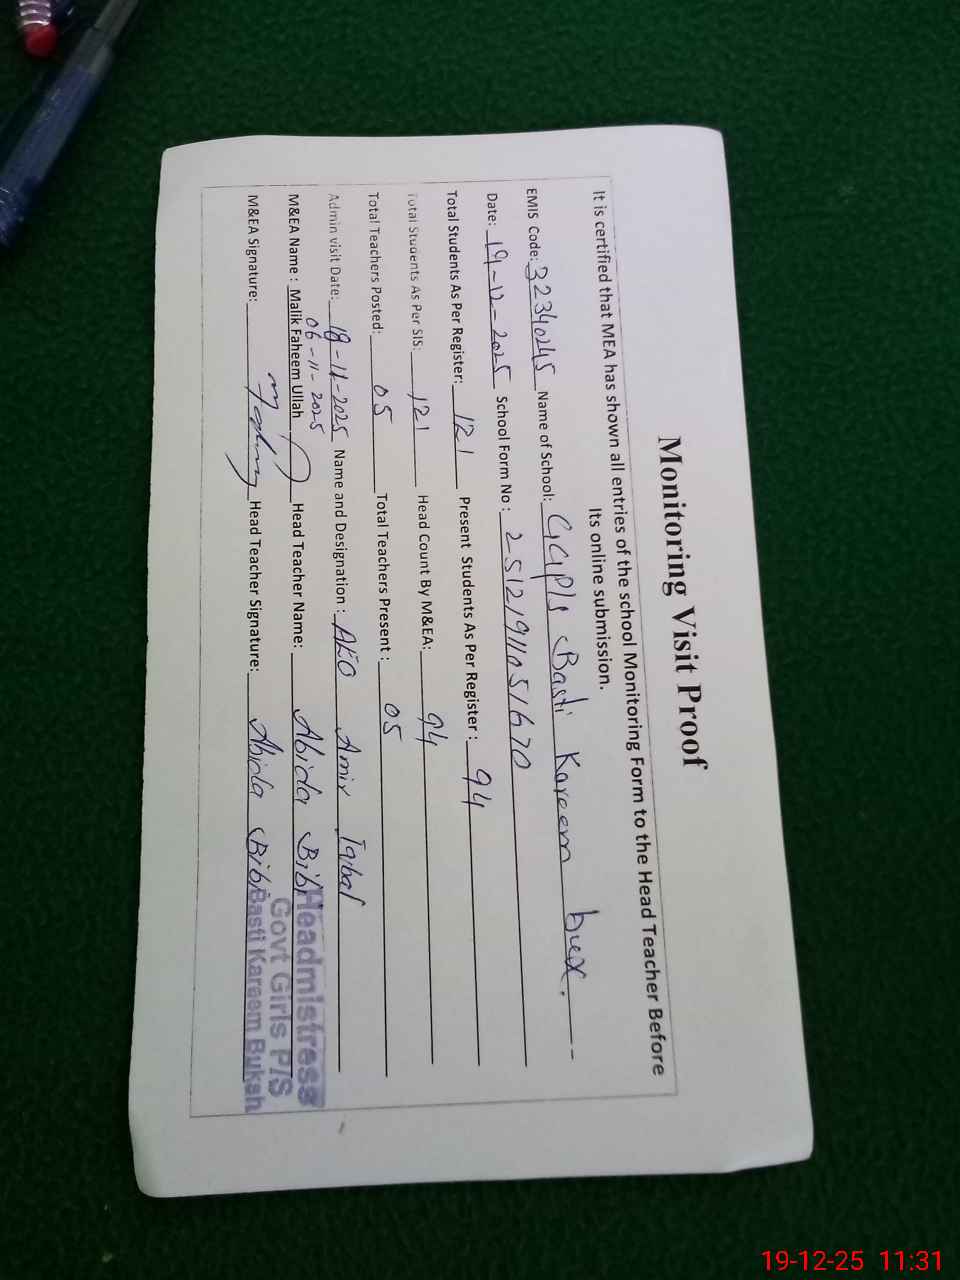 Monitoring Visit Proof
It is certified that MEA has shown all entries of the school Monitoring Form to the Head Teacher Before
Its online submission.
EMIS Code: 32340245 Name of School: GGP/S Basti Kareem bux.
Date: 19-12-2025 School Form No: 25121911051670
Total Students As Per Register: 121 Present Students As Per Register: 94
Total Students As Per SIS: 121 Head Count By M&EA: 94
Total Teachers Posted: 05 Total Teachers Present: 05
Admin visit Date: 18-11-2025 Name and Designation: AEO Amir Iqbal
06-11-2025
M&EA Name: Malik Faheem Ullah Head Teacher Name: Abida Bibi
M&EA Signature: Head Teacher Signature: Abida Bibi
Headmistress
Govt Girls P/S
Basti Kareem Buksh
19-12-25 11:31